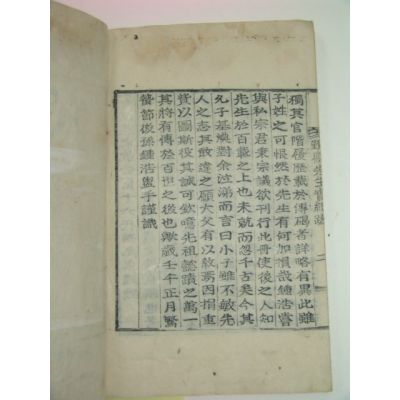 獨其官階履歷載於傳碣者詳略有異此雖
子姓之可恨然於先生有何加損哉鍾浩嘗
與私宗君秉宗議欲刊行此冊使後之人知
先生於百載之上也未就而怨千古矣今其
允子基煥對余泣涕而言曰小子雖不敏先
人之志其敢違之顧大父有以教焉因捐重
資以圖斯役其誠可欽噫先祖懿蹟之萬一
其將有傳於百世之後也歟歲壬午正月驚
蟄節後孫鍾浩盥手謹識